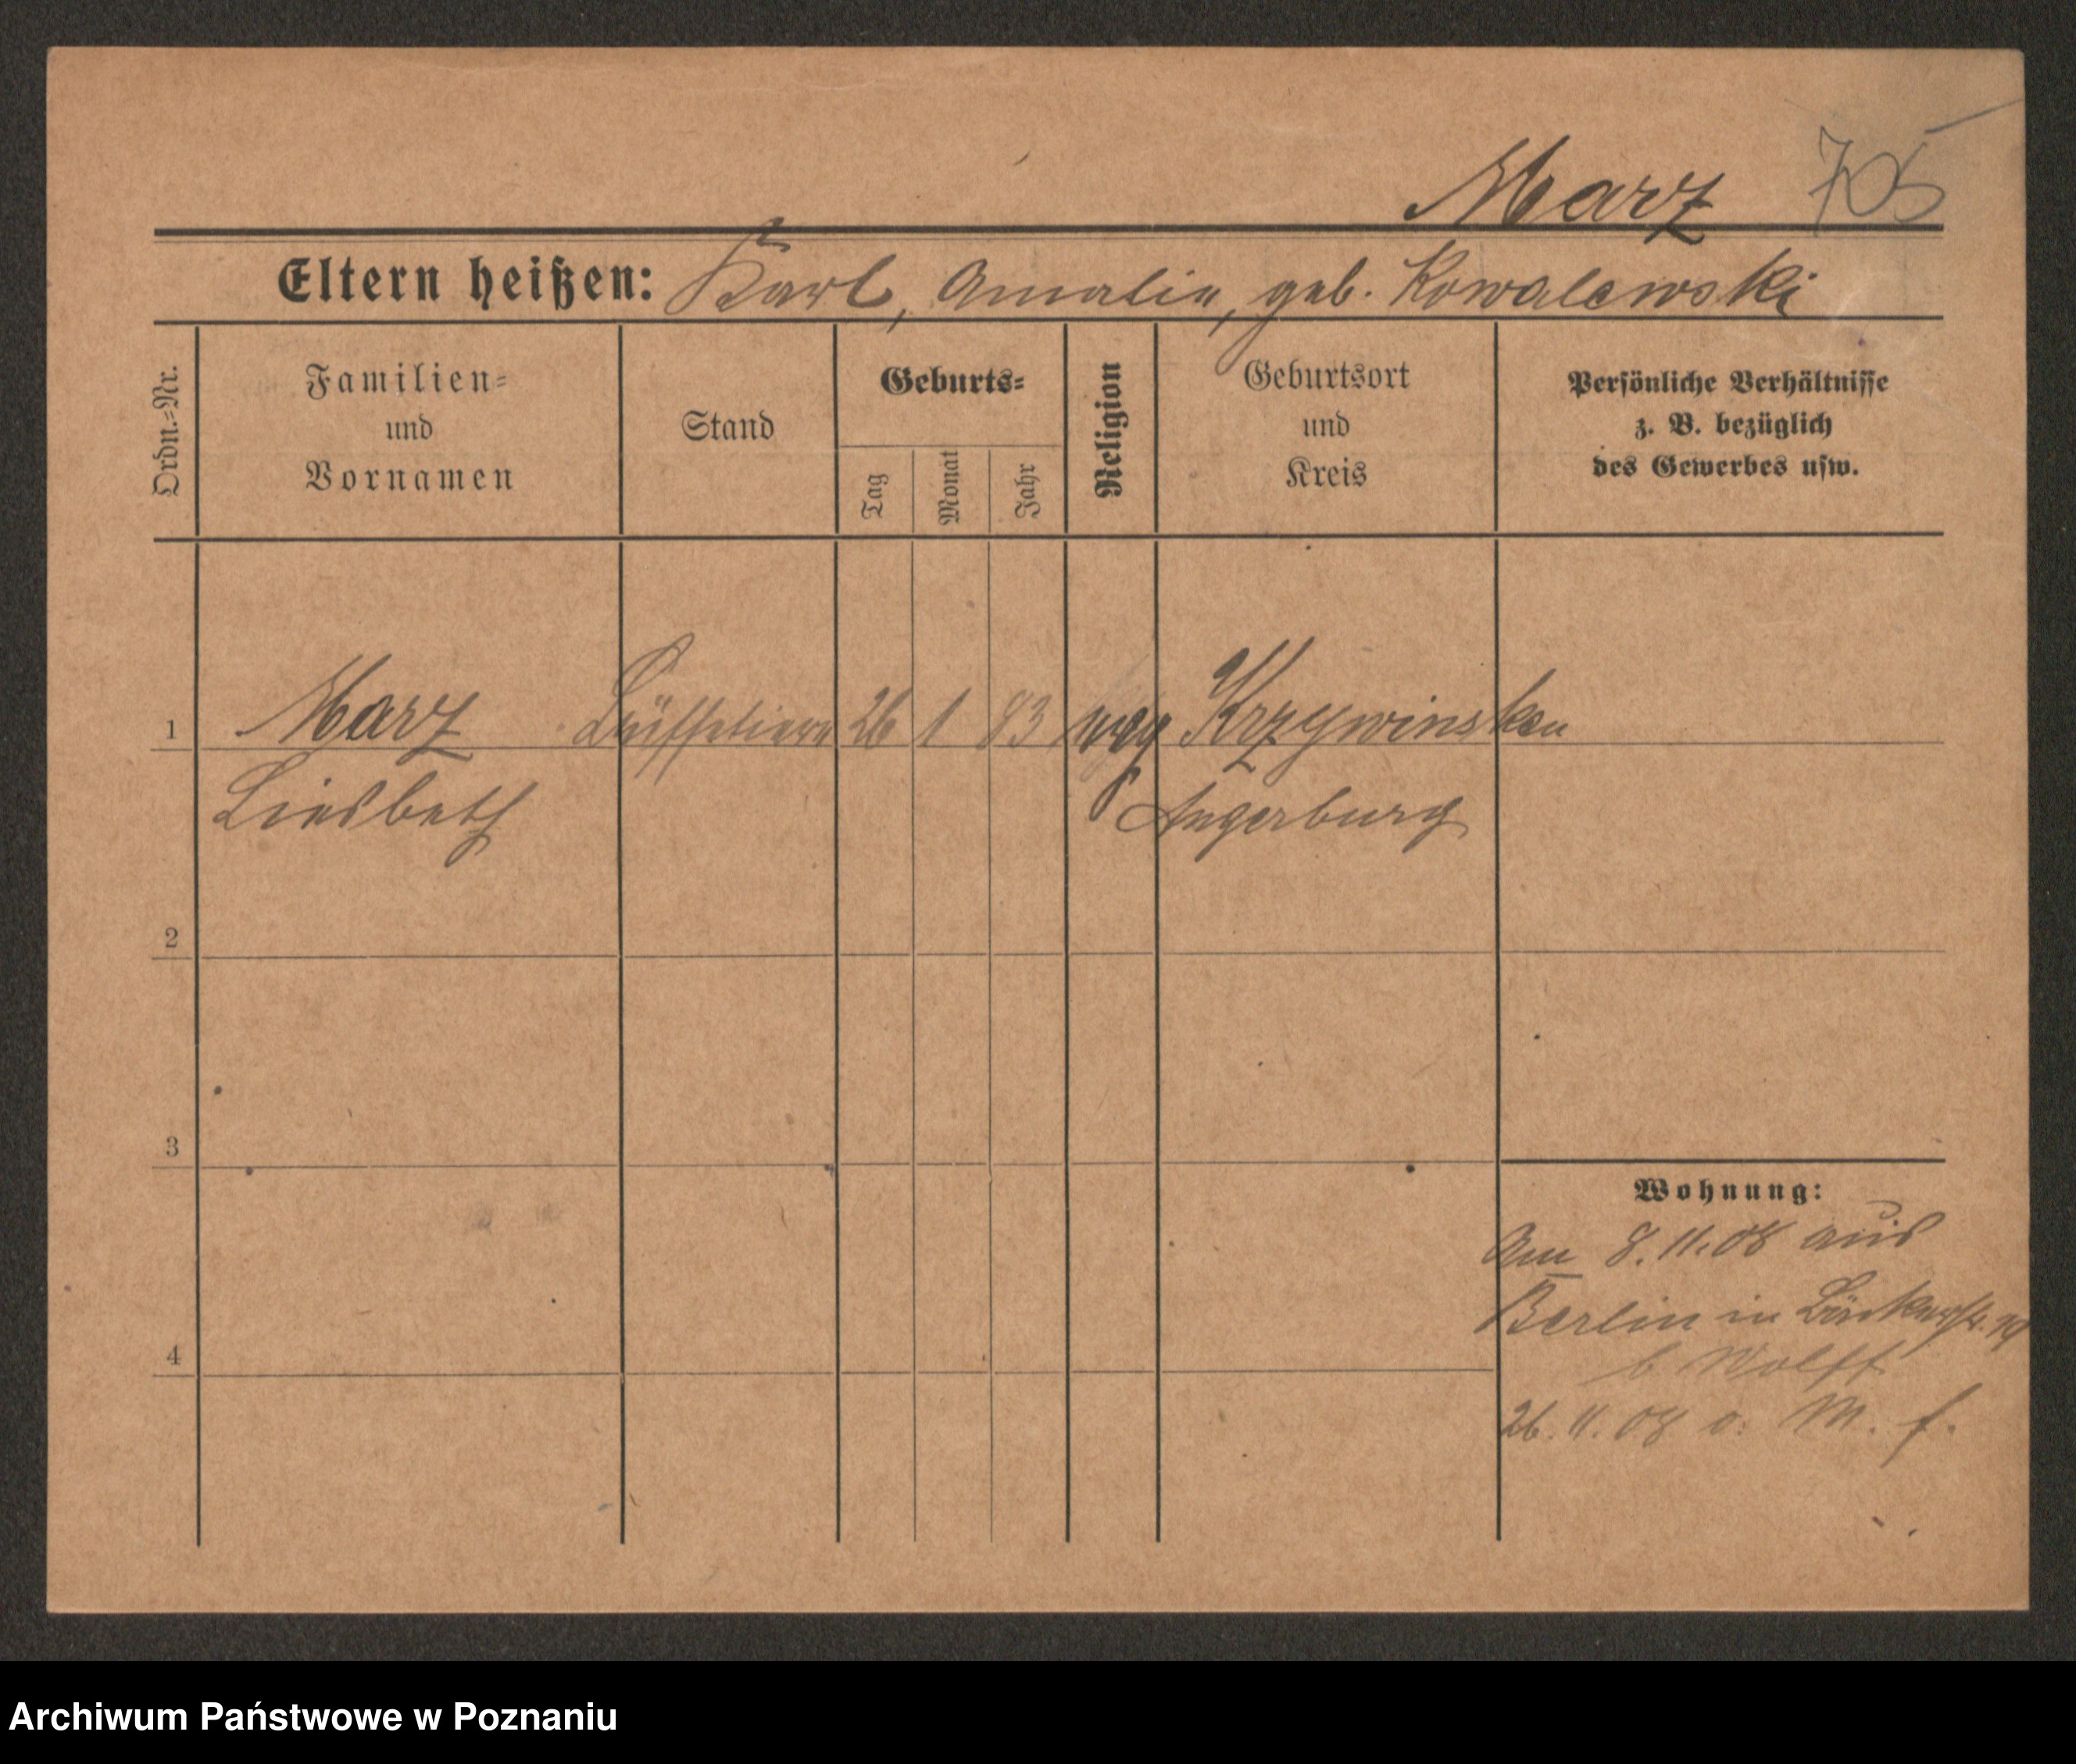 Marz 705
Eltern heißen: Karl, Amalie, geb. Kowalewski
Ordn.=Nr.
Familien=
und
Vornamen
Stand
Geburts=
Tag
Monat
Jahr
Religion
Geburtsort
und
Kreis
Persönliche Verhältnisse
z. B. bezüglich
des Gewerbes usw.
1 Marz Büffetiere 26 1 83 evg Krzywinsken
Liesbeth Angerburg
2
3
4
Wohnung:
Am 8.11.08 aus
Berlin in Bäckerstr.
b Wolff
26.11.08 v. M. f.
Archiwum Państwowe w Poznaniu